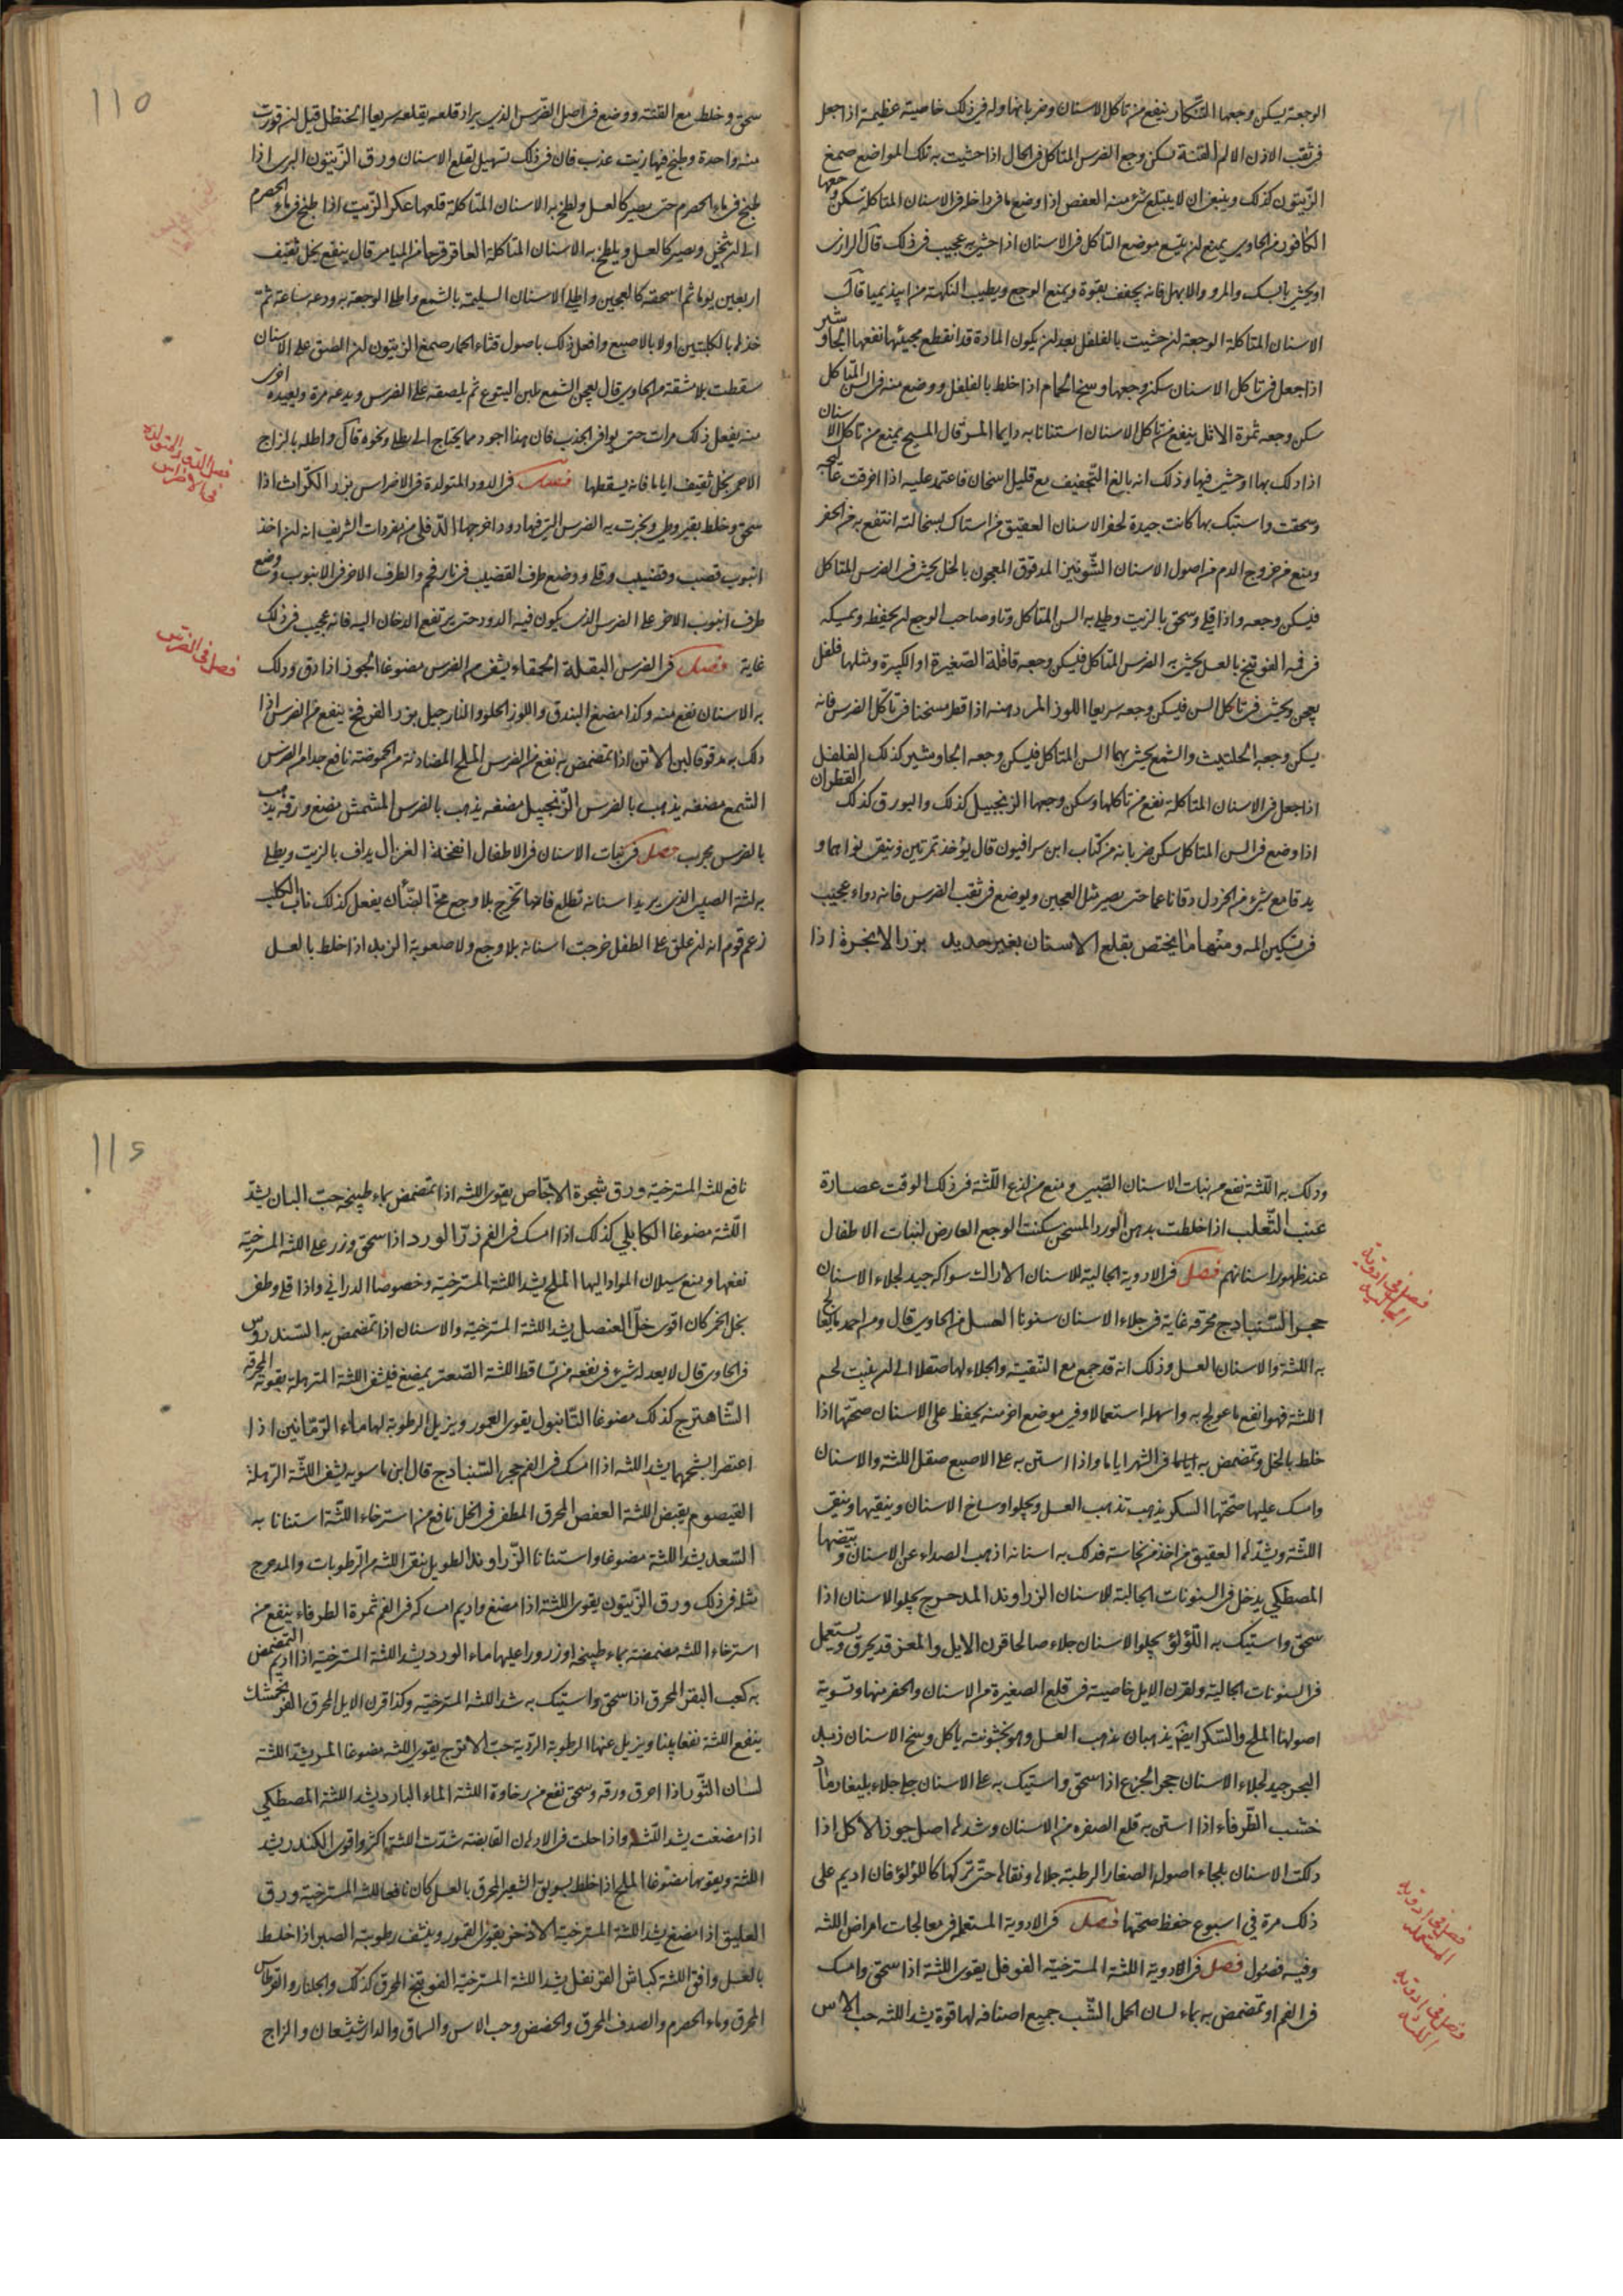 الوجعة يسكن وجعها التنكار ينفع من تاكل الاسنان وضربانها وله في ذلك خاصية عظيمة اذا جعل
في ثقب الاذن الالم القنة يسكن وجع الضرس المتاكل في الحال اذا حشيت به تلك المواضع صمغ
الزيتون كذلك وينبغي ان لا يبتلع شئ منه العفص اذا وضع ما في داخله في الاسنان المتاكلة سكن وجعها
الكافور من الحاوي يمنع ان يتسع موضع التاكل في الاسنان اذا حشي به عجيب في ذلك قال الرازي
او يحشى بالسك والمر والابهل فانه يجفف بقوة ويمنع الوجع ويطيب النكهة من ابيذيميا قال
الاسنان المتاكلة الوجعة ان حشيت بالفلفل بعد ان يكون المادة قد انقطع مجيئها نفعها الجاوشير
اذا جعل في تاكل الاسنان سكن وجعها وسخ الحمام اذا خلط بالفلفل ووضع منه في السن المتاكل
سكن وجعه ثمرة الاثل ينفع من تاكل الاسنان استنانا به دايما المر قال المسيح يمنع من تاكل الاسنان
اذا دلك بها او حشي فيها وذلك انه بالغ التجفيف مع قليل اسخان فاعتمد عليه اذا احرقت
وسحقت واستيك بها كانت جيدة لحفر الاسنان العقيق من استاك بسحالته انتفع به من الحفر
ومنع من خروج الدم من اصول الاسنان الشونيز المدقوق المعجون بالخل يحشى في الضرس المتاكل
فيسكن وجعه واذا قلي وسحق بالزيت وطلي به السن المتاكل وصاحب الوجع ان يحفظ ويمسكه
في فمه الفوتنج بالعسل يحشى به الضرس المتاكل فيسكن وجعه قاقلة الصغيرة او الكبيرة ومثلها فلفل
يعجن ويحشى في تاكل السن فيسكن وجعه سريعا اللوز المر دهنه اذا قطر مسخنا في تاكل الضرس فانه
يسكن وجعه الحلتيت والشمع يحشى بهما السن المتاكل فيسكن وجعه الجاوشير كذلك الفلفل القطران
اذا جعل في الاسنان المتاكلة نفع من تاكلها وسكن وجعها الزنجبيل كذلك والبورق كذلك
اذا وضع في السن المتاكل سكن ضربانه من كتاب ابن سرافيون قال يؤخذ تمرتين وينقى نواهما و
يدقا مع شئ من الخردل دقا ناعما حتى يصير مثل العجين ويوضع في ثقب الضرس فانه دواء عجيب
في تسكين المه ومنها ما يختص بقلع الاسنان بغير حديد بزر الانجرة اذا
110
سحق وخلط مع القنة ووضع في اصل الضرس الذي يراد قلعه يقلعه سريعا الحنظل قيل ان قورت
منه واحدة وطبخ فيها زيت عذب فان في ذلك تسهيل لقلع الاسنان ورق الزيتون البري اذا
طبخ في ماء الحصرم حتى يصير كالعسل ولطخ به الاسنان المتاكلة قلعها عكر الزيت اذا طبخ في ماء الحصرم
الى ان يثخن ويصير كالعسل ويلطخ به الاسنان المتاكلة العاقرقرحا من الميامر قال ينقع بخل ثقيف
اربعين يوما ثم اسحقه كالعجين واطلي الاسنان السليمة بالشمع واطلي الوجعة به ودعه ساعة ثم
خذه بالكلبتين او لا بالاصبع وافعل ذلك باصول قثاء الحمار صمغ الزيتون ان الصق على الاسنان
سقطت بلا مشقة من الحاوي قال يعجن الشمع بلبن اليتوع ثم يلصقه على الضرس ويدعه مرة ويعيده اخرى
منه يفعل ذلك مرات حتى يوافي الجذب فان هذا اجود مما يحتاج الى يطلى ونحوه قال واطله بالزاج
الاحمر بخل ثقيف اياما فانه يسقطها فصل في الدود المتولدة في الاضراس بزر الكراث اذا
سحق وخلط بقيروطي وبخرت به الضرس التي فيها دود اخرجها الدفلى من مفردات الشريف انه ان اخذ
انبوب قصب وقضيب ورقه ووضع طرف القضيب في نار فحم والطرف الاخر في الانبوب ووضع
طرف انبوب الاخر على الضرس الذي يكون فيه الدود حتى يرتفع الدخان اليه فانه عجيب في ذلك
غاية فصل في الضرس البقلة الحمقاء يشفي من الضرس مضوغا الجوز اذا دق ودلك
به الاسنان نفع منه وكذا مضغ البندق واللوز الحلو والنارجيل بزر الفرفخ ينفع من الضرس اذا
دلك به مدقوقا لبن الاتن اذا تمضمض به نفع من الضرس الملح المضاد له من الحموضة نافع جدا من الضرس
الشمع مضغه يذهب بالضرس الزنجبيل مضغه يذهب بالضرس المشمش مضغ ورقه يذهب
بالضرس مجرب فصل في نبات الاسنان في الاطفال انفخة الغزال يداف بالزيت ويطلي
به لثة الصبي الذي يريد اسنانه تطلع فانها تخرج بلا وجع مخ الضان يفعل كذلك ناب الكلب
زعم قوم انه ان علق على الطفل خرجت اسنانه بلا وجع ولا صعوبة الزبد اذا خلط بالعسل
فصل في الدود المتولدة
في الاضراس
فصل في الضرس
ودلك به اللثة نفع من نبات الاسنان القبيى ومنع من لذع اللثة في ذلك الوقت عصارة
عنب الثعلب اذا خلطت بدهن الورد المسخن سكنت الوجع العارض لنبات الاطفال
عند ظهور اسنانهم فصل في الادوية الجالية للاسنان الاراك سواكه جيد لجلاء الاسنان
حجر السنبادج محرقه غاية في جلاء الاسنان سنونا العسل من الحاوي قال ومن احمد ما يعالج
به اللثة والاسنان العسل وذلك انه قد جمع مع التنقية والجلاء لها صقلا الى ان ينبت لحم
اللثة فهو انفع ما عولج به واسهله استعمالا وفي موضع اخر منه يحفظ على الاسنان صحتها اذا
خلط بالخل وتمضمض به اياما في الشهر اياما واذا استن به على الاصبع صقل اللثة والاسنان
وامسك عليها صحتها السكر يذهب تذهيب العسل ويجلو اوساخ الاسنان وينقيها وينقي
اللثة ويشدها العقيق من اخذ من نحاسته فدلك به اسنانه اذهب الصداء عن الاسنان وبيضها
المصطكي يدخل في السنونات الجالية للاسنان الزراوند المدحرج يجلو الاسنان اذا
سحق واستيك به اللؤلؤ يجلو الاسنان جلاء صالحا قرن الايل والمعز قد يحرق ويستعمل
في السنونات الجالية ولقرن الايل خاصية في قلع الصفيرة من الاسنان والحفر منها وتسوية
اصولها الملح والسكر ايضا يذهبان بذهب العسل وهو بخشونته ياكل وسخ الاسنان زبد
البحر جيد لجلاء الاسنان حجر الجزع اذا سحق واستيك به على الاسنان جلي جلاء بليغا رماد
خشب الطرفاء اذا استن به قلع الصفره من الاسنان وشدها اصل جوز الاكل اذا
دلكت الاسنان بلحاء اصوله الصغار الرطبة جلاها ونقاها حتى تركها كاللؤلؤ فان اديم على
ذلك مرة في اسبوع حفظ صحتها فصل في الادوية المستعملة في معالجات امراض اللثة
وفيه فصول فصل في الادوية اللثة المسترخية الفوفل يقوى اللثة اذا سحق وامسك
في الفم او تمضمض به بماء لسان الحمل الشب جميع اصنافه لها قوة يشد اللثة حب الاس
فصل في ادوية
الجالية
فصل في ادوية
المستعملة
فصل في ادوية
اللثة
نافع للثة المسترخية ورق شجرة الاجاص يقوى اللثة اذا تمضمض بماء طبيخه حب البان يشد
اللثة مضوغا الكابلي كذلك اذا امسك في الفم زر الورد اذا سحق وذر على اللثة المسترخية
نفعها ومنع سيلان المواد اليها الملح يشد اللثة المسترخية وخصوصا الدراني واذا قلي وطفي
بخل الخمر كان اقوى خل العنصل يشد اللثة المسترخية والاسنان اذا تمضمض به السندروس
في الحاوي قال لا يعدله شئ في نفعه من تساقط اللثة الصعتر يمضغ فيشفي اللثة المترهلة بقوته المحرقة
الشاهترج كذلك مضوغا التانبول يقوى العمور ويزيل الرطوبة لها ماء الرمانين اذا
اعتصرا بشحمهما يشد اللثة اذا امسك في الفم حجر السنبادج قال ابن ماسويه يشفي اللثة الرهلة
القيصوم يقبض اللثة العفص المحرق المطفى في الخل نافع من استرخاء اللثة استنانا به
السعد يشد اللثة مضوغا واستنانا الزراوند الطويل ينقي اللثة من الرطوبات والمدحرج
مثله في ذلك ورق الزيتون يقوى اللثة اذا مضغ واديم امساكه في الفم ثمرة الطرفاء ينفع من
استرخاء اللثة مضمضة بماء طبيخه او ذرورا عليها ماء الورد يشد اللثة المسترخية اذا اديم التمضمض
به كعب البقر المحرق اذا سحق واستيك به شد اللثة المسترخية وكذا قرن الايل المحرق الفرنجمشك
ينفع اللثة نفعا بينا ويزيل عنها الرطوبة الردية حب الاترج يقوى اللثة مضوغا المر يشد اللثة
لسان الثور اذا احرق ورقه وسحق نفع من رخاوة اللثة الماء البارد يشد اللثة المصطكي
اذا مضغت يشد اللثة واذا حلت في الادهان القابضة شدت اللثة اكثر واقوى الكندر يشد
اللثة ويقويها مضوغا الملح اذا خلط بسويق الشعير المحرق بالعسل كان نافعا للثة المسترخية ورق
العليق اذا مضغ يشد اللثة المسترخية الاذخر يقوى العمور وينشف رطوبته الصبر اذا خلط
بالعسل وافق اللثة كباش القرنفل يشد اللثة المسترخية الفوتنج المحرق كذلك والجلنار والقرطاس
المحرق وماء الحصرم والصدف المحرق والحضض وحب الاس والسماق والدارشيشعان والزاج